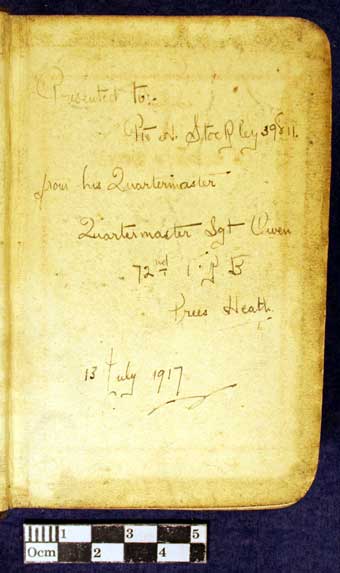 Presented to:-
Pte A. Stockley 39811.
from his Quartermaster
Quartermaster Sgt Owen
72nd T.R.B
Prees Heath.
13 July 1917
1 3 5
0cm 2 4